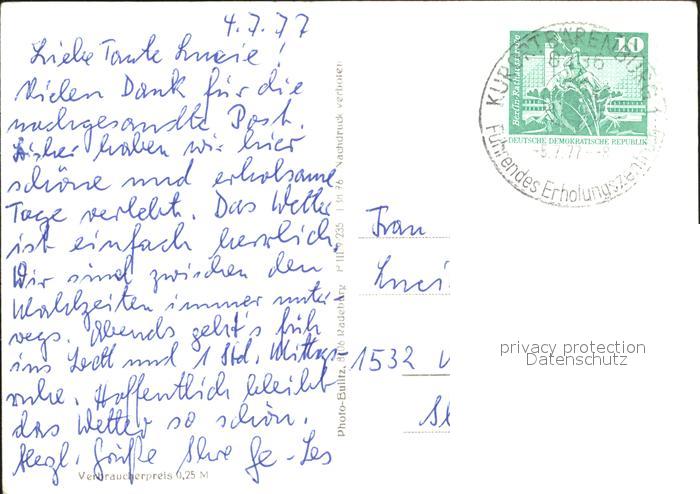 4.7.77
Liebe Tante Lucie!
Vielen Dank für die
nachgesandte Post.
Bisher haben wir hier
schöne und erholsame
Tage verlebt. Das Wetter
ist einfach herrlich.
Wir sind zwischen den
Mahlzeiten immer unter-
wegs. Abends geht's früh
ins Bett und 1 Std. Mittags-
ruhe. Hoffentlich bleibt
das Wetter so schön.
Herzl. Grüße Ihre
Verbraucherpreis 0,25 M
Photo-Bulitz, 8106 Radeburg P III 9 235 Nachdruck verboten
Frau
Luci
1532
10
Berlin-Rathausstraße
DEUTSCHE DEMOKRATISCHE REPUBLIK
KURORT
Führendes Erholungszentrum
privacy protection
Datenschutz